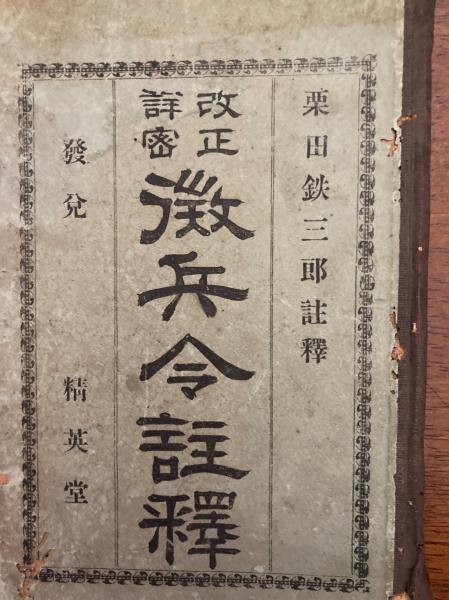 栗田鉄三郎註釋
改正
詳密
徴兵令註釋
發兌 精英堂